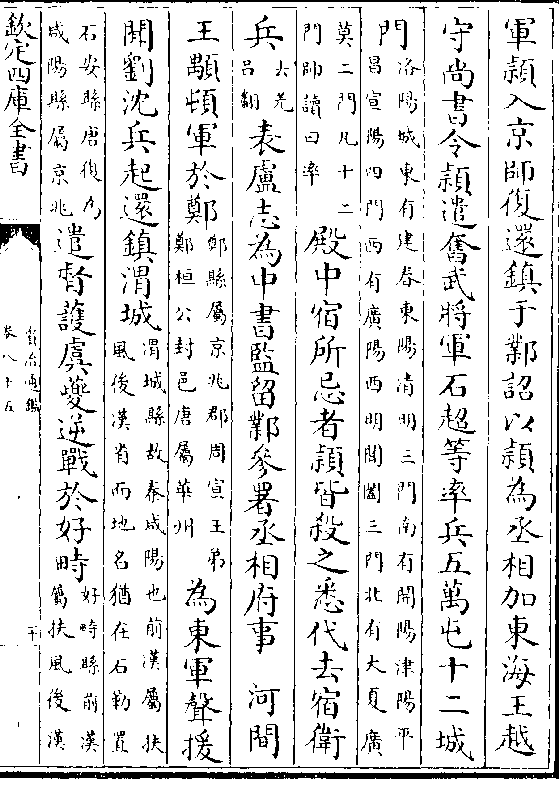 軍穎入京師復還鎮于鄴詔以穎為丞相加東海王越
守尚書令穎遣奮武將軍石超等率兵五萬屯十二城
門洛陽城東有建春東陽清明三門南有開陽津陽平
昌宣陽四門西有廣陽西明閶闔三門北有大夏廣
莫二門凡十二
門帥讀曰率殿中宿所忌者穎皆殺之悉代去宿衛
兵去羌
呂翻表盧志為中書監留鄴參署丞相府事 河間
王顒頓軍於鄭鄭縣屬京兆郡周宣王弟
鄭桓公封邑唐屬華州為東軍聲援
聞劉沈兵起還鎮渭城渭城縣故秦咸陽也前漢屬扶
風後漢省而地名猶在石勒置
石安縣唐復為
咸陽縣屬京兆遣督護虞夔逆戰於好畤好畤縣前漢
屬扶風後漢
欽定四庫全書
資治通鑑
卷八十五